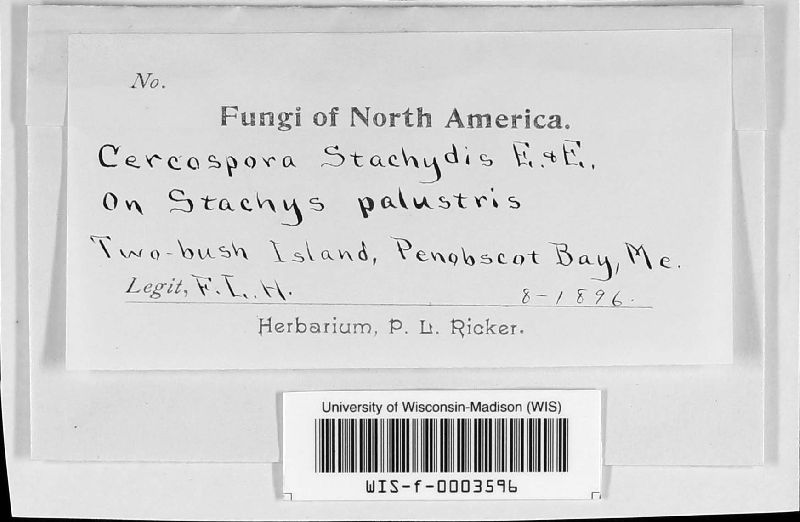 No.
Fungi of North America.
Cercospora Stachydis E. & E.,
on Stachys palustris
Two-bush Island, Penobscot Bay, Me.
Legit, F. L. H. 8-1896.
Herbarium, P. L. Ricker.
University of Wisconsin-Madison (WIS)
WIS-f-0003596